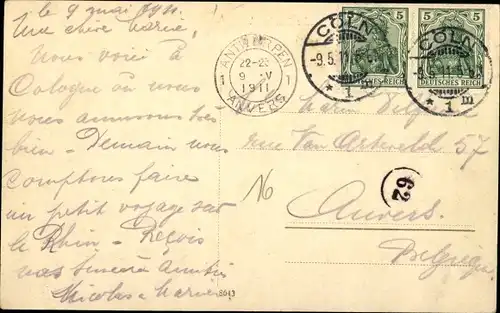 le 9 mai 1911.
Ma chère Marie,
Nous voici à
Cologne où nous
nous amusons très
bien - Demain nous
comptons faire
un petit voyage sur
le Rhin - Reçois
nos sincères amitiés
Nicolas & Marie
ANTWERPEN
1 22-23 1
9 V
1911
ANVERS
CÖLN
-9.5.11
* 1 m
CÖLN
-9.5.11
* 1 m
5 5
DEUTSCHES REICH
Marie
rue Van Artevelde 57
16
62
Anvers.
Belgique